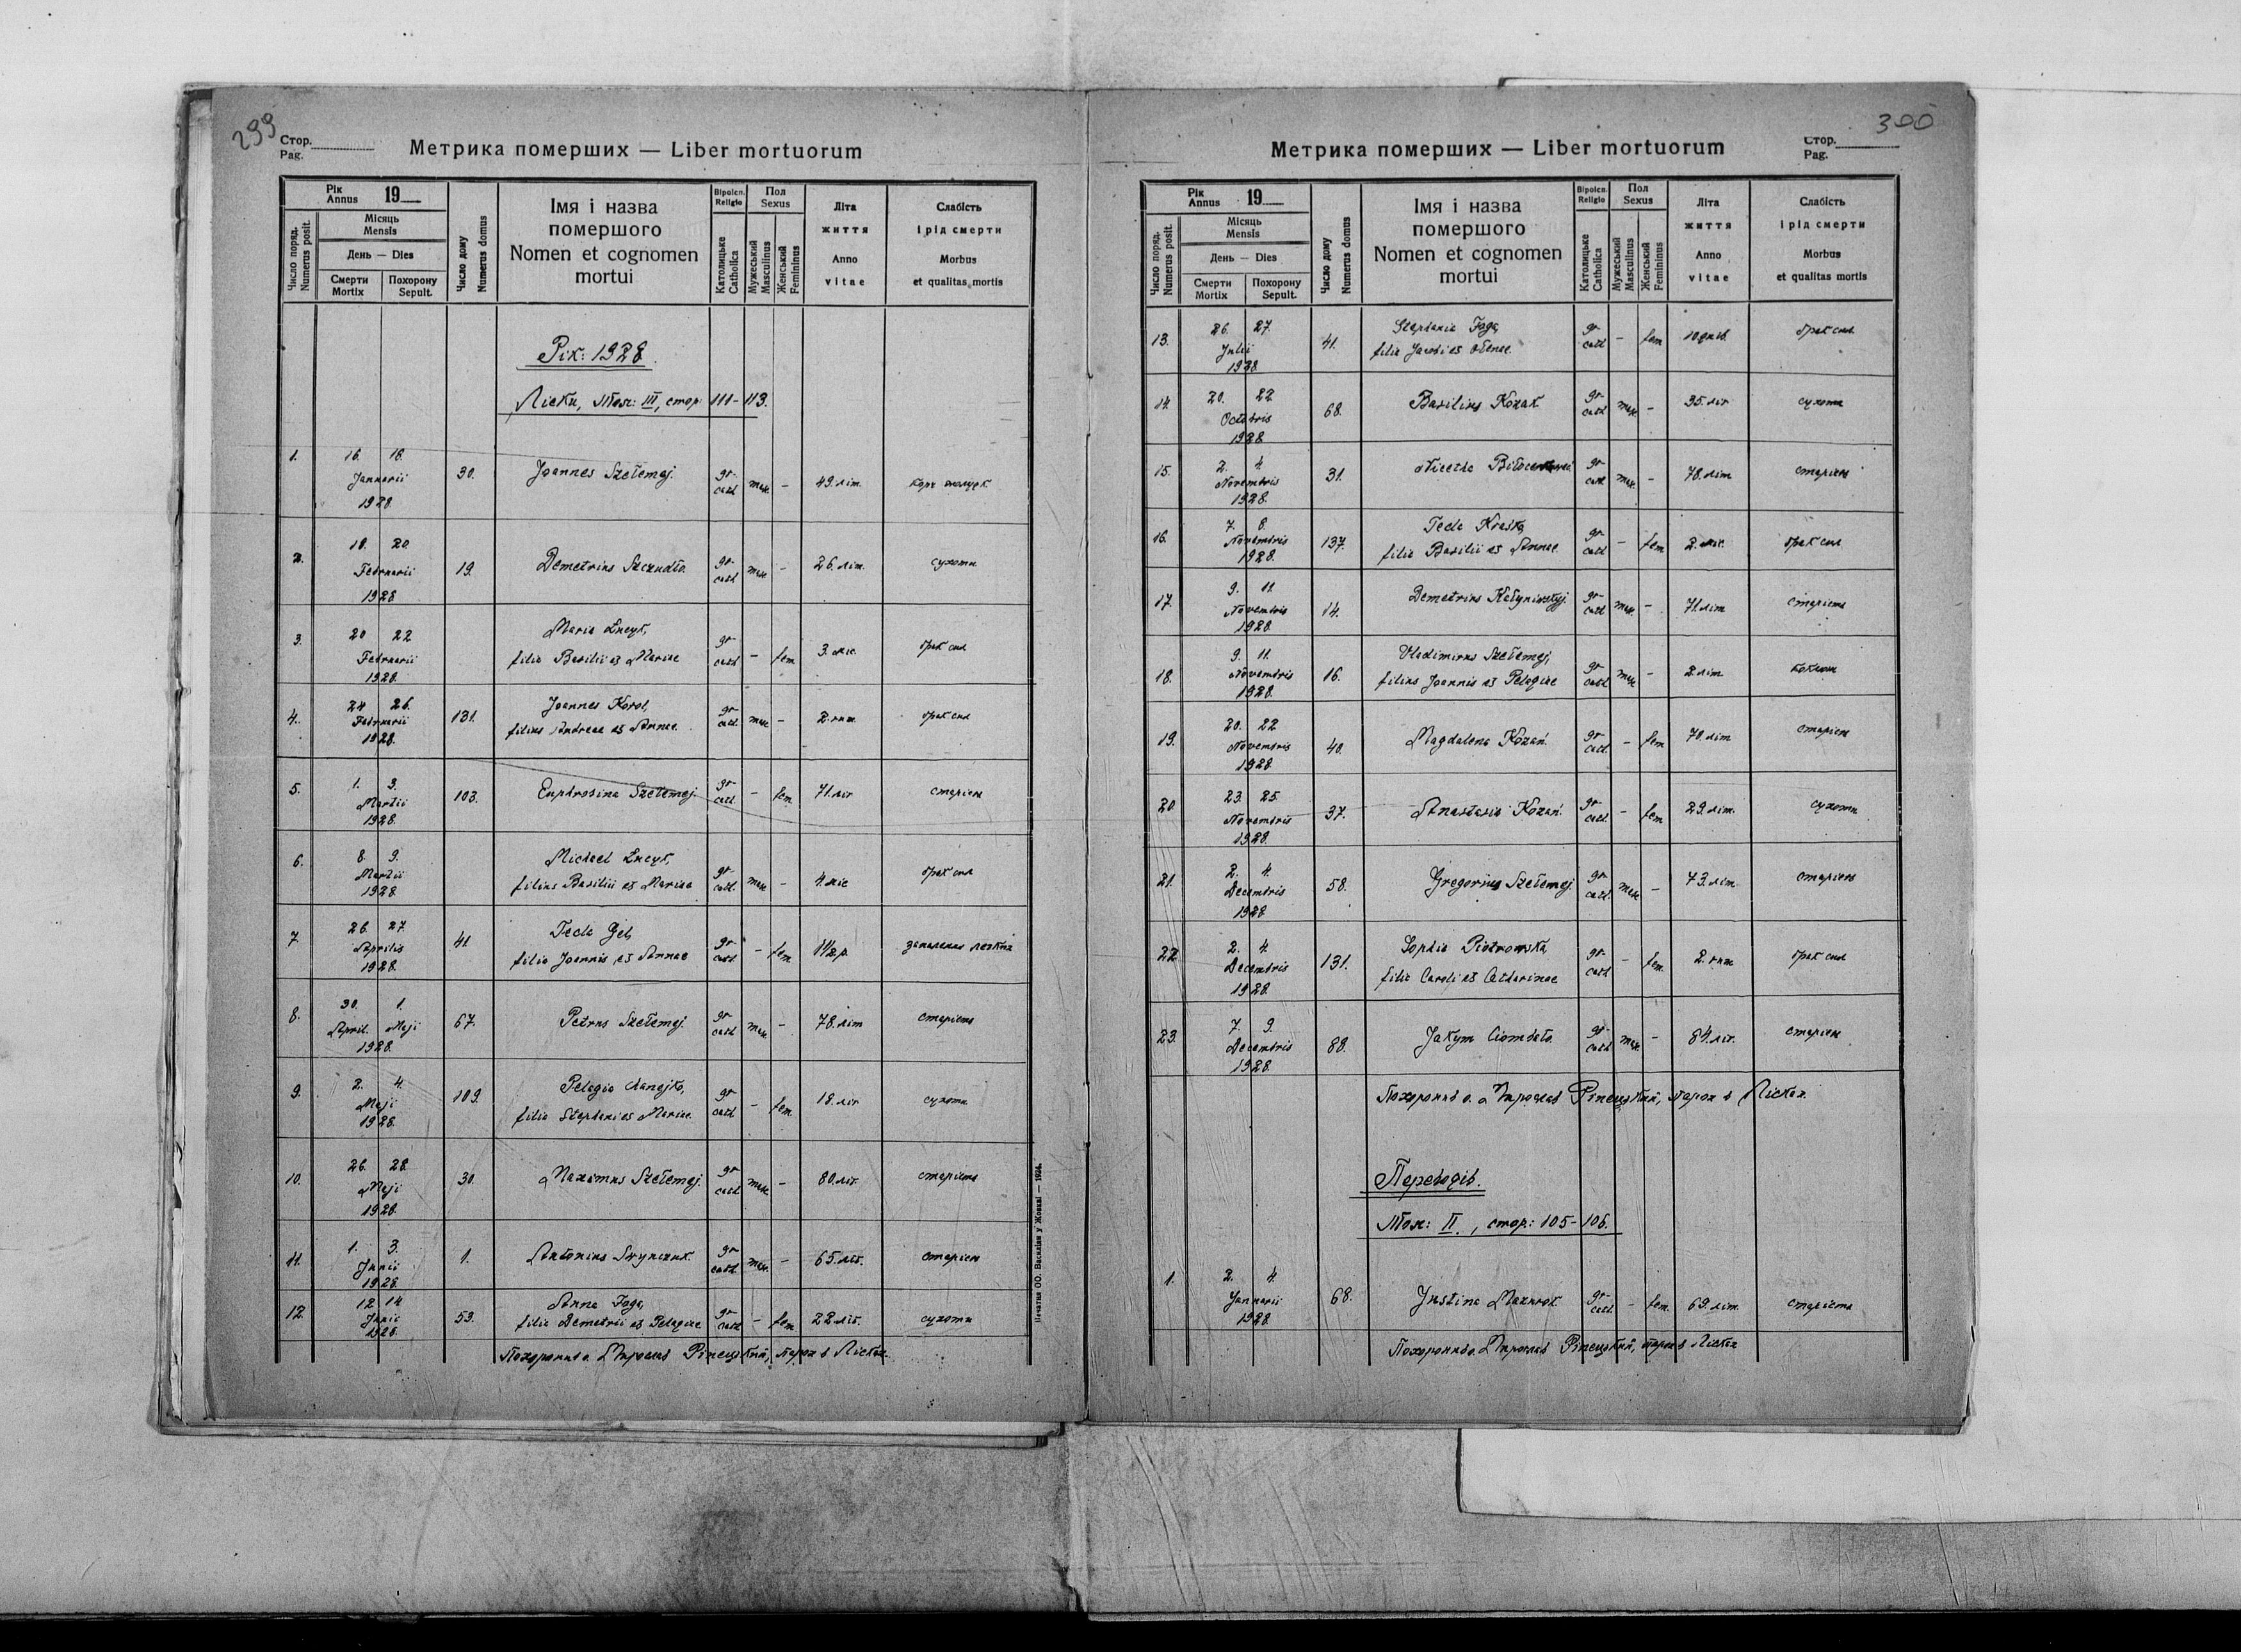 299
Стор.
Pag.
Метрика померших — Liber mortuorum
Рік
Annus 19
Число поряд.
Numerus posit.
Місяць
Mensis
День — Dies
Смерти
Mortix
Похорону
Sepult.
Число дому
Numerus domus
Імя і назва
помершого
Nomen et cognomen
mortui
Віроісп.
Religio
Католицьке
Catholica
Пол
Sexus
Мужеський
Masculinus
Женський
Femininus
Літа
життя
Anno
vitae
Слабість
і рід смерти
Morbus
et qualitas mortis
Рік: 1928.
Ліски, Том: III, стор: 111-113.
1. 16. 18. 30. Joannes Szełemej. gr- masc. - 49. літ.
Januarii cath
1928.
2. 18. 20. 19. Demetrius gr- masc - 26. літ. сухоти
Februarii cath
1928
3. 20 22 Maria Łucyk, gr- - fem. 3. міс. брак сил
Februarii filia Basilii et Mariae cath
1928.
4. 24 26. 131. Joannes Korol, gr- masc - 2. год. брак сил
Februarii filius Andreae et Annae. cath.
1928.
5. 1. 3. 103. Euphrosina Szełemej gr- - fem. 71. літ старість
Martii cath.
1928.
6. 8. 9. Michael Łucyk, gr- masc - 4. міс брак сил
Martii filius Basilii et Mariae cath.
1928
7. 26 27. 41 Tecla Gel, gr- - fem. 1 1/2 р. запалення легких
Aprilis filia Joannis et Annae cath
1928.
8. 30. 1. 67. Petrus Szełemej. gr- masc - 78. літ старість
April. Maji cath
1928.
9. 2. 4. 109. Pelagia Hanejko, gr- - fem. 18. літ сухоти
Maji filia Stephani et Mariae. cath
1928.
10. 26. 28. 30. Maximus Szełemej. gr- masc - 80. літ. старість
Maji cath
1928.
11. 1. 3. 1. Antonius gr- masc. - 65. літ. старість
Junii cath.
1928.
12. 12 14 59. Anna Jaga, gr- - fem 22 літ. сухоти
Junii filia Demetrii et Pelagiae cath
1928.
Похоронив о. Мирослав Ріпецький, парох в Лісках.
Печатня ОО. Василіян у Жовкві — 1924.
300
Стор.
Pag.
Метрика померших — Liber mortuorum
Рік
Annus 19
Число поряд.
Numerus posit.
Місяць
Mensis
День — Dies
Смерти
Mortix
Похорону
Sepult.
Число дому
Numerus domus
Імя і назва
помершого
Nomen et cognomen
mortui
Віроісп.
Religio
Католицьке
Catholica
Пол
Sexus
Мужеський
Masculinus
Женський
Femininus
Літа
життя
Anno
vitae
Слабість
і рід смерти
Morbus
et qualitas mortis
13. 26. 27. 41. Stephania Jaga, gr- - fem 10 днів. брак сил
Julii filia Jacobi et Helenae. cath
1928.
14. 20. 22 68. Basilius Kozak gr- masc. - 35. літ сухоти
Octobris cath
1928
15. 2. 4. 31. Niceta gr- masc. - 78. літ старість
Novembris cath
1928.
16. 7. 8. 137. Tecla Kraska, gr- - fem 2. міс. брак сил
Novembris filia Basilii et Annae. cath
1928.
17. 9. 11. 14. Demetrius gr- masc - 71. літ старість
Novembris cath
1928.
18. 9. 11. 16. Vladimirus Szełemej, gr- masc - 2. літ коклюш
Novembris filius Joannis et Pelagiae cath
1928.
19. 20. 22 40. Magdalena Kozań. gr- - fem 70. літ старість
Novembris cath.
1928.
20 23. 25. 37. Anastasia Kozań. gr- - fem 29. літ. сухоти
Novembris cath.
1928.
21. 2. 4. 58. Gregorius Szełemej gr- masc - 73. літ старість
Decembris cath.
1928
22 2. 4. 131. Sophia Piotrowska, gr- - fem. 2. год брак сил
Decembris filia Caroli et Catharinae cath
1928.
23. 7. 9. 88. Jakym gr- masc. - 84. літ. старість
Decembris cath
1928.
Похоронив о. Мирослав Ріпецький, парох в Лісках.
Переводів.
Том: II., стор: 105-106.
1. 2. 4. 68. Justina Mazurok gr- - fem. 69. літ. старість
Januarii cath.
1928.
Похоронив о. Мирослав Ріпецький, парох в Лісках